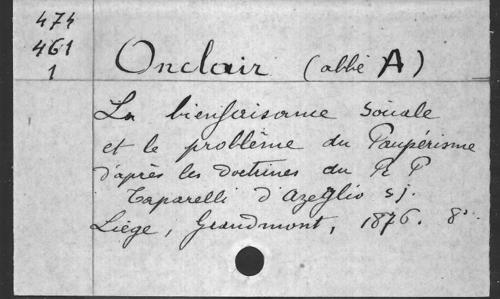 474
461
1
Onclair (abbé A)
La bienfaisance sociale
et le problème du Paupérisme
d'après les doctrines du R P
Taparelli d'Azeglio sj.
Liège, Grandmont, 1876. 8°